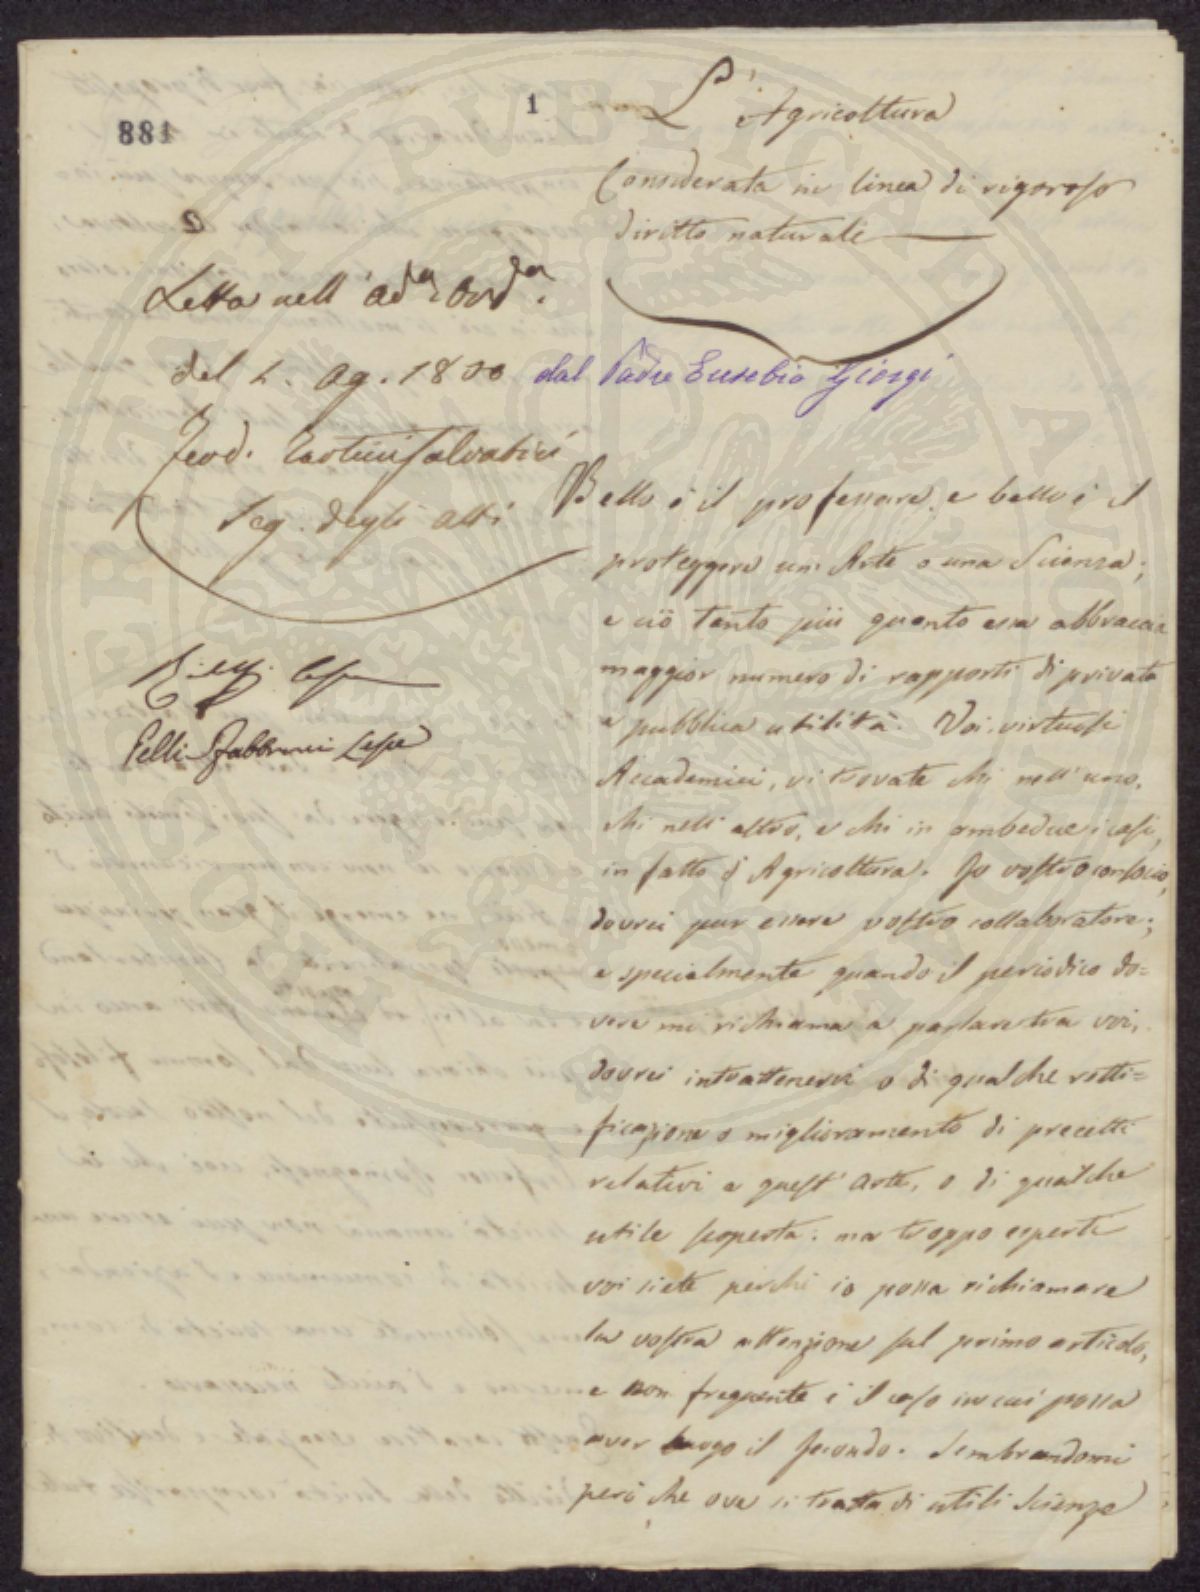 881
1
L'Agricoltura
Considerata in linea di rigoroso
diritto naturale
Letta nell' Ad.a Ord.a
del 2. Ag. 1800 dal Padre Eusebio Giorgi
Ferd. Tartini Salvatici
Seg. degli Atti
Pelli Fabbroni
Bello è il professare, e bello è il
proteggere un' Arte o una Scienza;
e ciò tanto più quanto essa abbraccia
maggior numero di rapporti di privata
e pubblica utilità. Voi, virtuosi
Accademici, vi trovate chi nell' uno,
chi nell' altro, e chi in ambedue i casi,
in fatto d' Agricoltura. Io vostro consocio,
dovrei pur essere vostro collaboratore;
e specialmente quando il periodico do=
vere mi richiama a parlare tra voi,
dovrei intrattenervi o di qualche retti=
ficazione o miglioramento di precetti
relativi a quest' Arte, o di qualche
utile scoperta: ma troppo esperti
voi siete perchè io possa richiamare
la vostra attenzione sul primo articolo,
e non frequente è il caso in cui possa
aver luogo il secondo. Sembrandomi
però che ove si tratta di utili Scienze
PUBLICAE